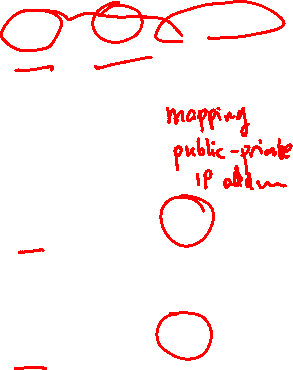 mapping
public-private
IP